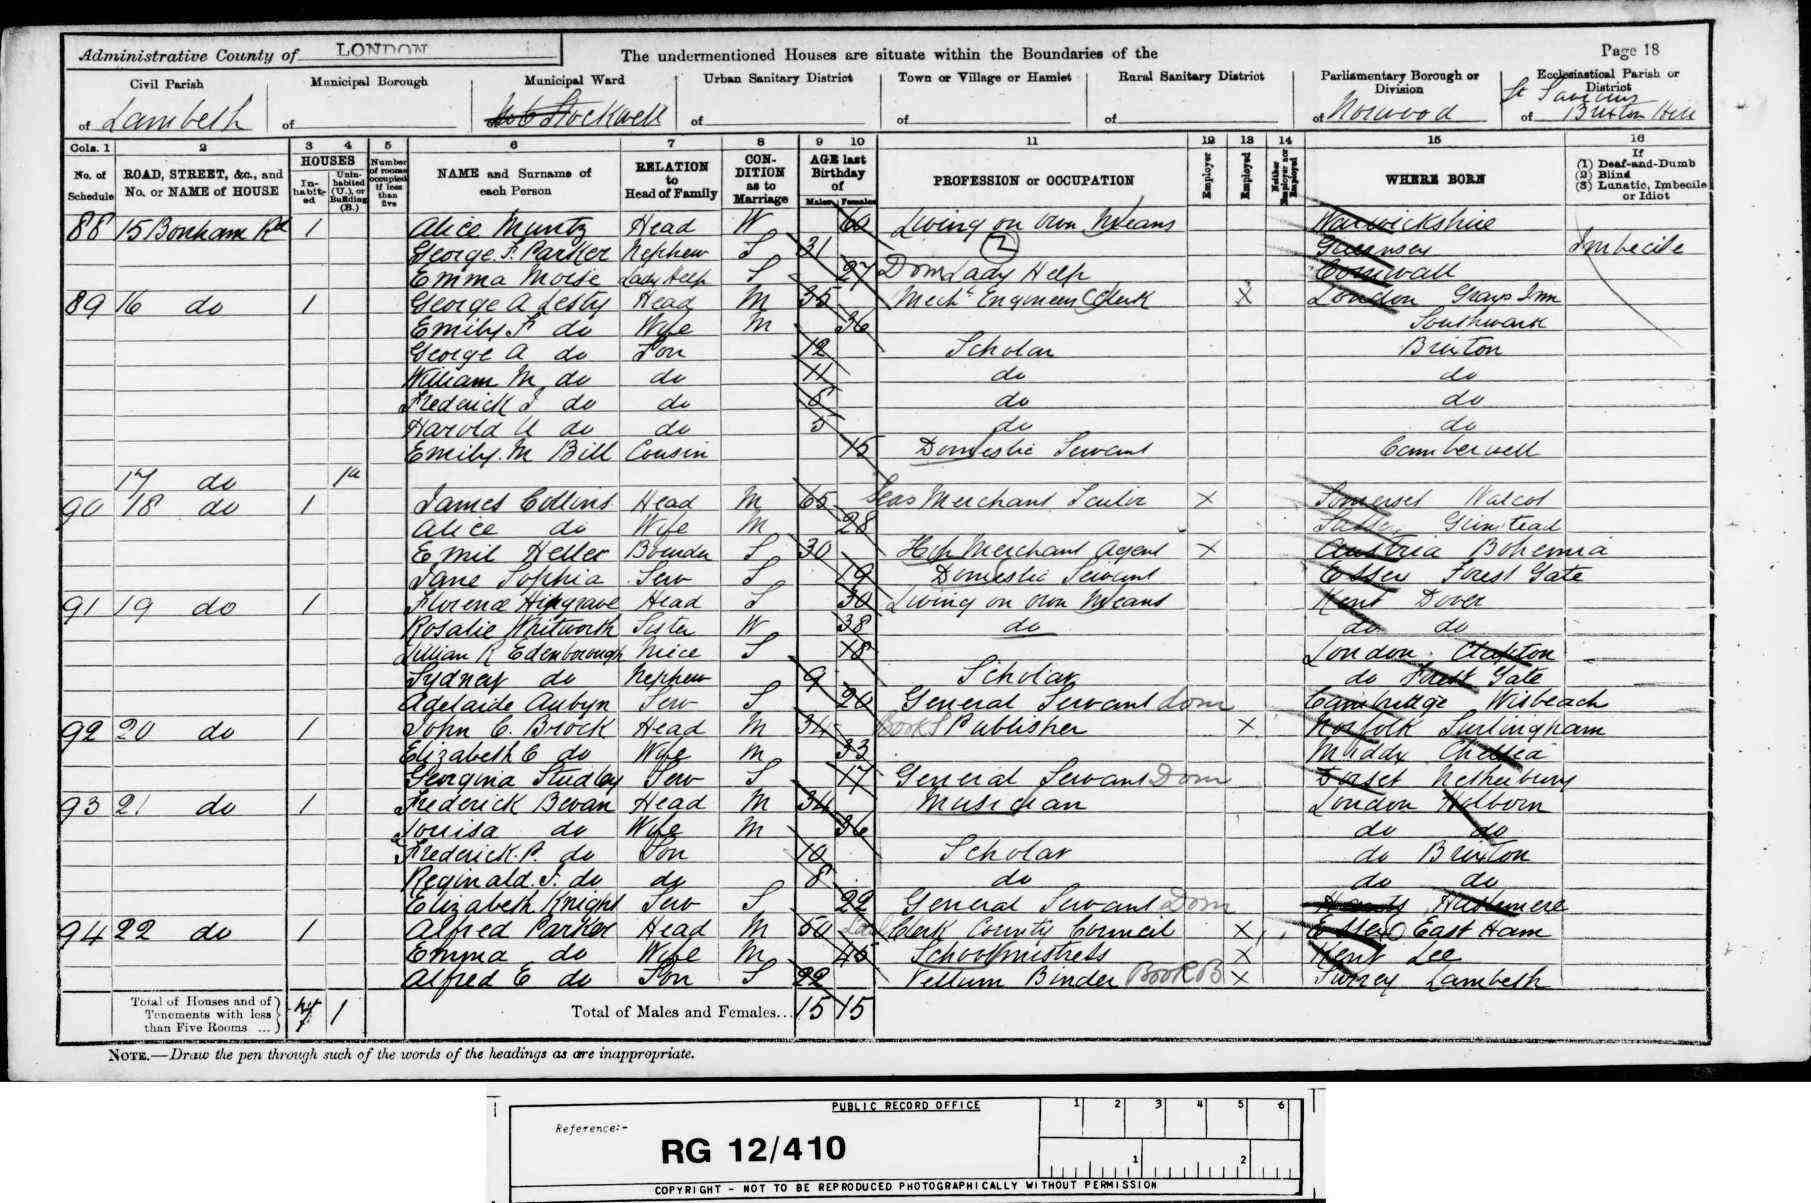 Administrative County of LONDON
The undermentioned Houses are situate within the Boundaries of the
Page 18
Civil Parish
of Lambeth
Municipal Borough
of
Municipal Ward
Stockwell
Urban Sanitary District
of
Town or Village or Hamlet
of
Rural Sanitary District
of
Parliamentary Borough or Division
of Norwood
Ecclesiastical Parish or District
of St Saviours Brixton Hill
Cols. 1 2 3 4 5 6 7 8 9 10 11 12 13 14 15 16
No. of Schedule
ROAD, STREET, &c., and No. or NAME of HOUSE
HOUSES
Inhabited
Uninhabited (U.), or Building (B.)
Number of rooms occupied if less than five
NAME and Surname of each Person
RELATION to Head of Family
CONDITION as to Marriage
AGE last Birthday of
Males Females
PROFESSION or OCCUPATION
Employer
Employed
Neither Employer nor Employed
WHERE BORN
If
(1) Deaf-and-Dumb
(2) Blind
(3) Lunatic, Imbecile or Idiot
88 15 Bonham Rd 1 Alice Muntz Head W 60 Living on Own Means Warwickshire
George F. Parker Nephew S 31 2 Guernsey Imbecile
Emma Morse Lady Help S 27 Dom Lady Help Cornwall
89 16 do 1 George A Head M 35 Mechl Engineers Clerk X London Grays Inn
Emily F do Wife M 36 Southwark
George A do Son 12 Scholar Brixton
William M do do 11 do do
Frederick J do do 8 do do
Harold do do 5 do do
Emily M Bill Cousin 15 Domestic Servant Camberwell
17 do 1u
90 18 do 1 James Collins Head M 65 Merchant Tailor X Somerset Walcot
Alice do Wife M 28 Sussex Grinstead
Emil Heller Boarder S 30 Hop Merchant Agent X Austria Bohemia
Jane Sophia Serv S 19 Domestic Servant Essex Forest Gate
91 19 do 1 Florence Hipgrave Head S 30 Living on Own Means Kent Dover
Rosalie Whitworth Sister W 38 do do do
Lillian R Edenborough Niece S 18 London Clapton
Sydney do Nephew 9 Scholar do Forest Gate
Adelaide Aubyn Serv S 20 General Servant dom Cambridge Wisbeach
92 20 do 1 John C. Brock Head M 34 Books Publisher X Norfolk Surlingham
Elizabeth E do Wife M 33 Middx Chelsea
Georgina Studley Serv S 17 General Servant Dom Dorset Netherbury
93 21 do 1 Frederick Bevan Head M 34 Musician London Holborn
Louisa do Wife M 36 do do
Frederick P. do Son 10 Scholar do Brixton
Reginald F. do do 8 do do do
Elizabeth Knight Serv S 22 General Servant Dom Hants Haslemere
94 22 do 1 Alfred Parker Head M 50 Clerk County Council X Essex East Ham
Emma do Wife M 45 Schoolmistress X Kent Lee
Alfred E do Son S 22 Vellum Binder Book B X Surrey Lambeth
Total of Houses and of Tenements with less than Five Rooms ... 7 1
Total of Males and Females... 15 15
NOTE.—Draw the pen through such of the words of the headings as are inappropriate.
PUBLIC RECORD OFFICE
1 2 3 4 5 6
Reference:-
RG 12/410
1 2
COPYRIGHT - NOT TO BE REPRODUCED PHOTOGRAPHICALLY WITHOUT PERMISSION